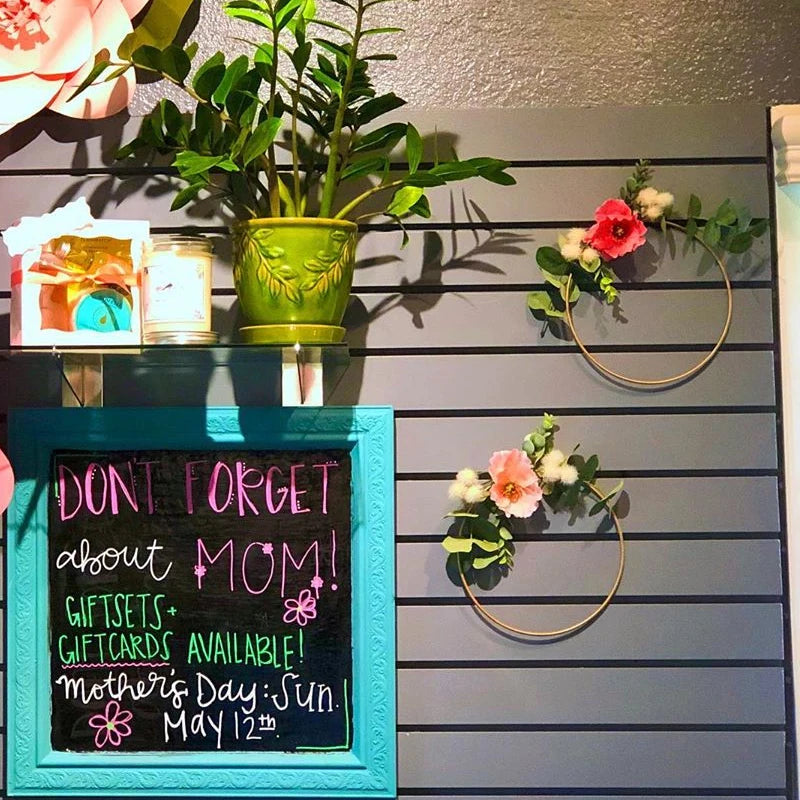 DON'T FORGET
about MOM!
GIFTSETS +
GIFTCARDS AVAILABLE!
Mother's Day: Sun.
May 12th.